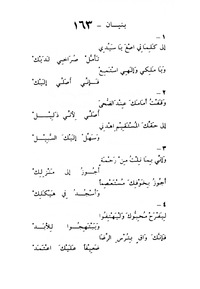 بنيان - ١٦٣
- ١
إلى كلماتي اصغ يا سيدي
تأمل صراخي لديك
ويا ملكي وإلهي استمع
فإني أصلي إليك
- ٢
وقفت أمامك عند الضحى
أصلي لأني ذليل
إلى حقك المستقيم اهدني
وسهل إليك السبيل
- ٣
وإني بما نلت من رحمة
أجوز إلى منزلك
أجوز بخوفك مستعصما
وأسجد في هيكلك
- ٤
ليفرح محبوك وليهتفوا
ويبتهجوا للأبد
فإنك واق بترس الرضا
ضعيفا عليك اعتمد